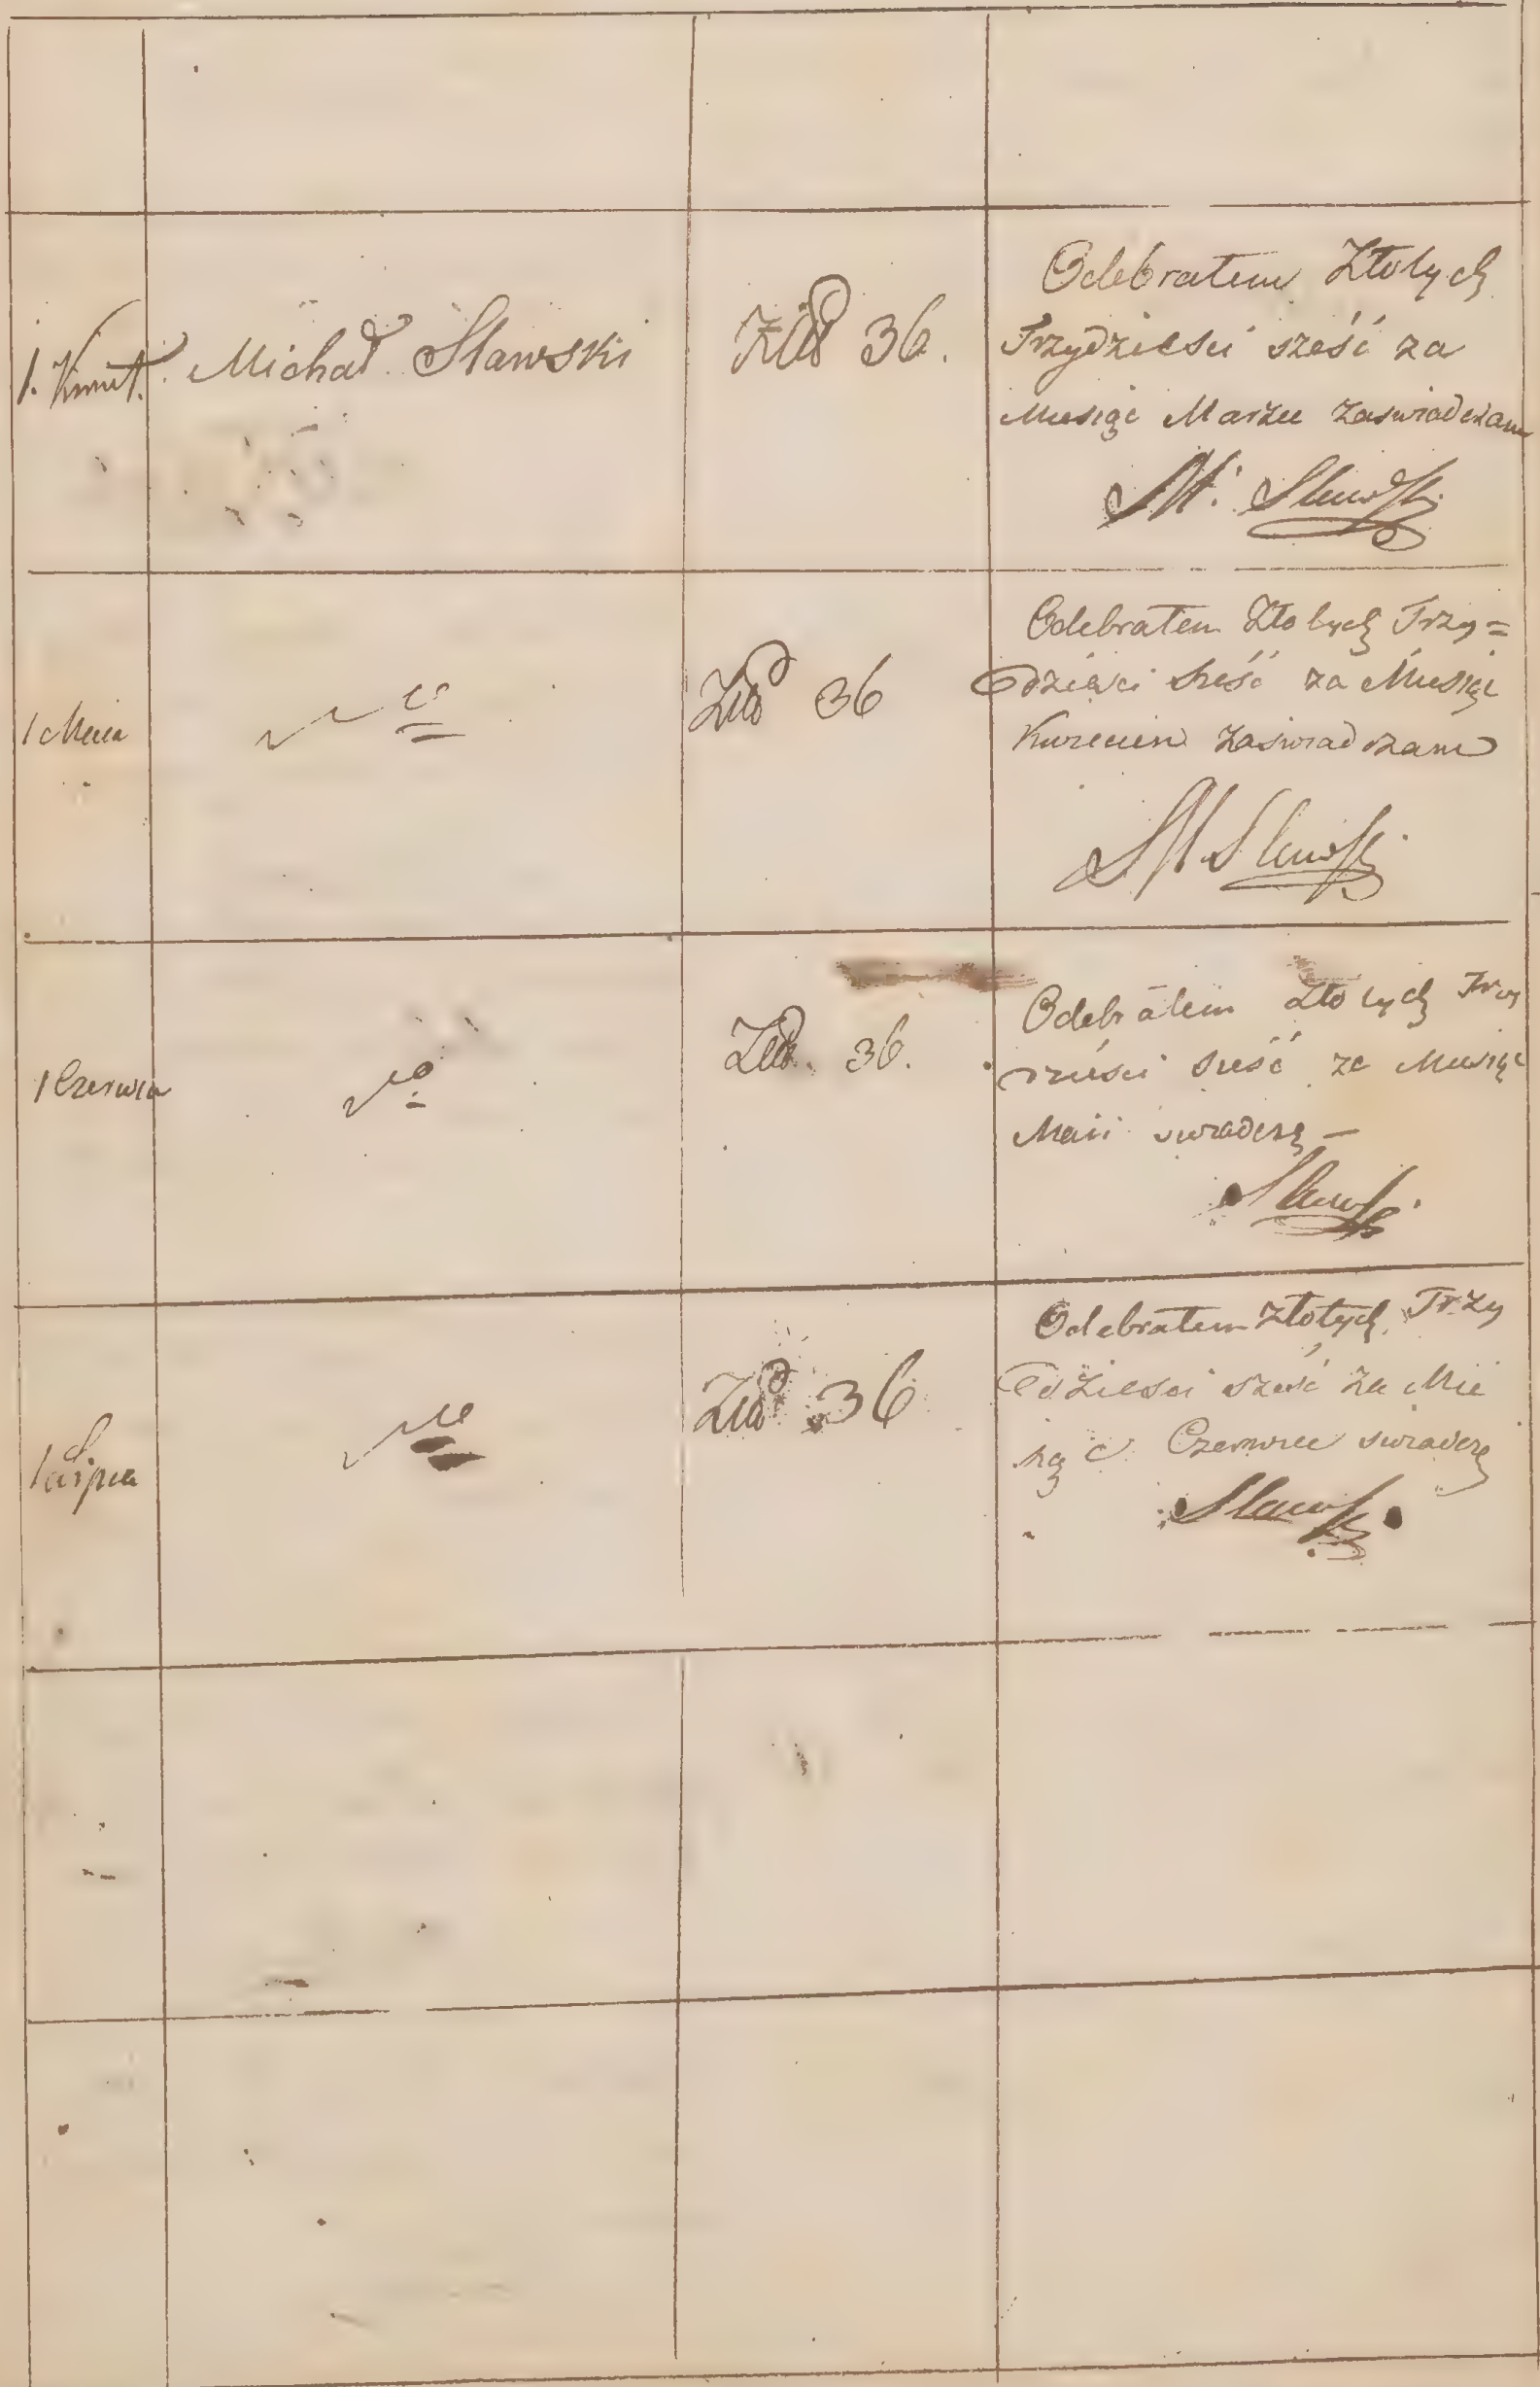 1. Kwiet. Michał Sławski Złp 36.
Odebrałem Złotych
Trzydzieści sześć za
Miesiąc Marzec zaświadczam
M. Sławski
1 Maia Złp 36
Odebrałem Złotych Trzy=
dzieści sześć za Miesiąc
Kwiecień zaświadczam
M Sławski
1 Czerwca Złp. 36.
Odebrałem Złotych Trzy
dzieści sześć za Miesiąc
Maii świadczę —
Sławski
1 Lipca Złp 36
Odebrałem Złotych Trzy
dzieści sześć za Mie
siąc Czerwiec świadczę
Sławski